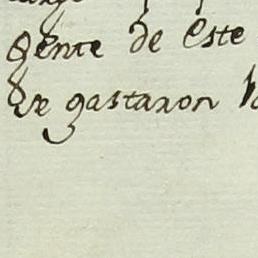 gente de este
se gastaron